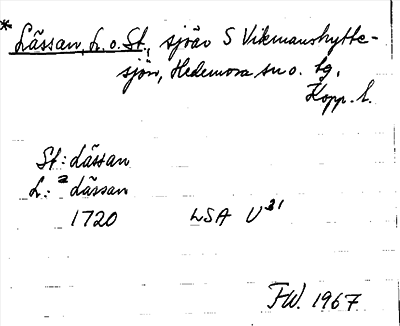 * Lässan, L. o. St., sjöar S Vikmanshytte-
sjön, Hedemora sn o. tg,
Kopp. l.
St: Lässan
L: ² Lässan
1720 LSA U³¹
FW. 1967